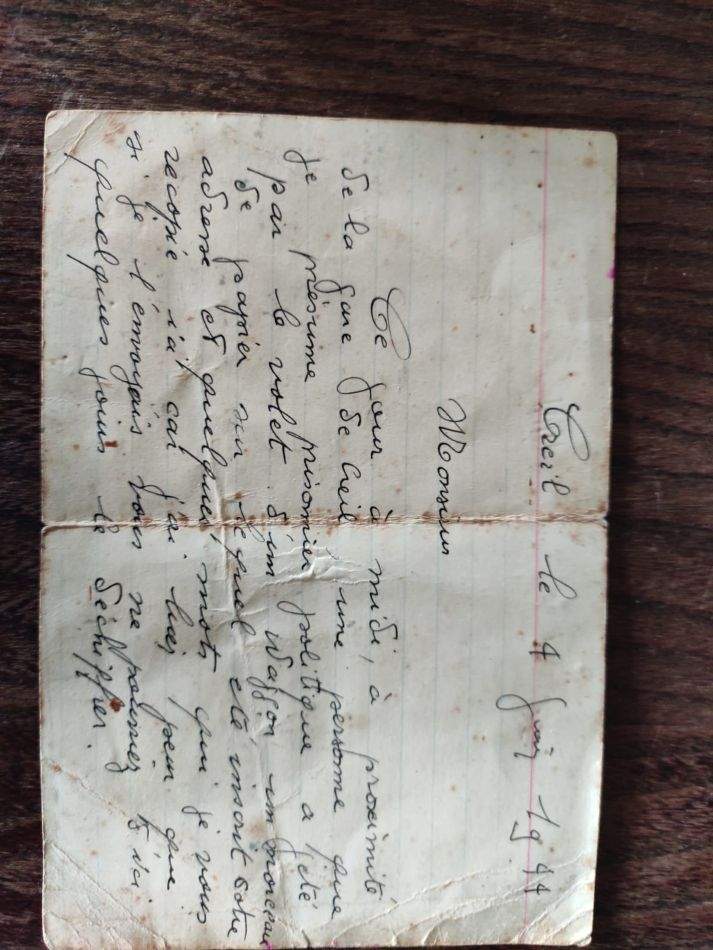 Creil le 4 Juin 1944
Monsieur
Ce jour à midi, à proximité
de la gare de Creil une personne que
je présume prisonnier politique a jeté
par le volet d'un wagon un morceau
de papier sur lequel été inscrit votre
adresse et quelques mots que je vous
recopie ici car j'ai bien peur que
si je l'envoyais vous ne pourriez d'ici
quelques jours le déchiffrer.